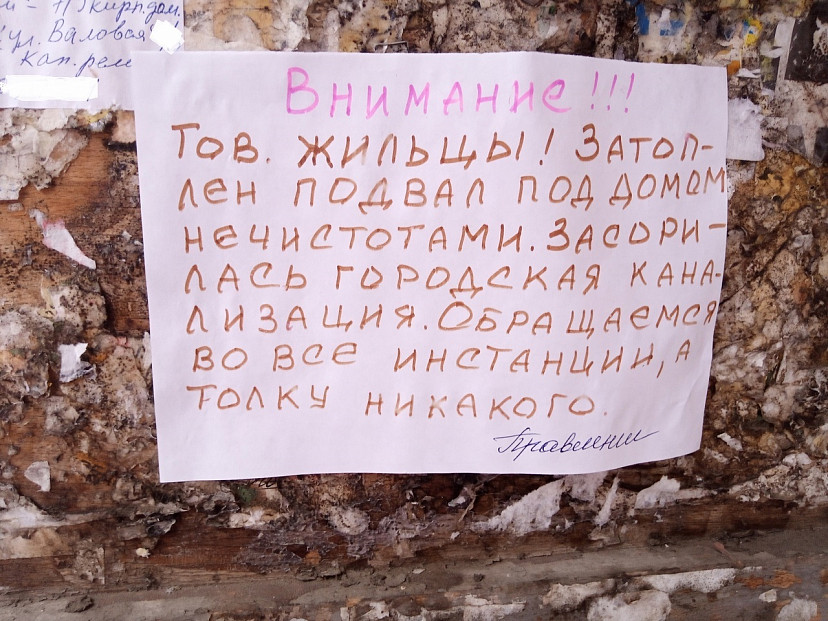 /1 жирн. дом,
ул. Валовая
кап. рем
Внимание!!!
Тов. жильцы! Затоп-
лен подвал под домом
нечистотами. Засори-
лась городская кана-
лизация. Обращаемся
во все инстанции, а
толку никакого.
Правление